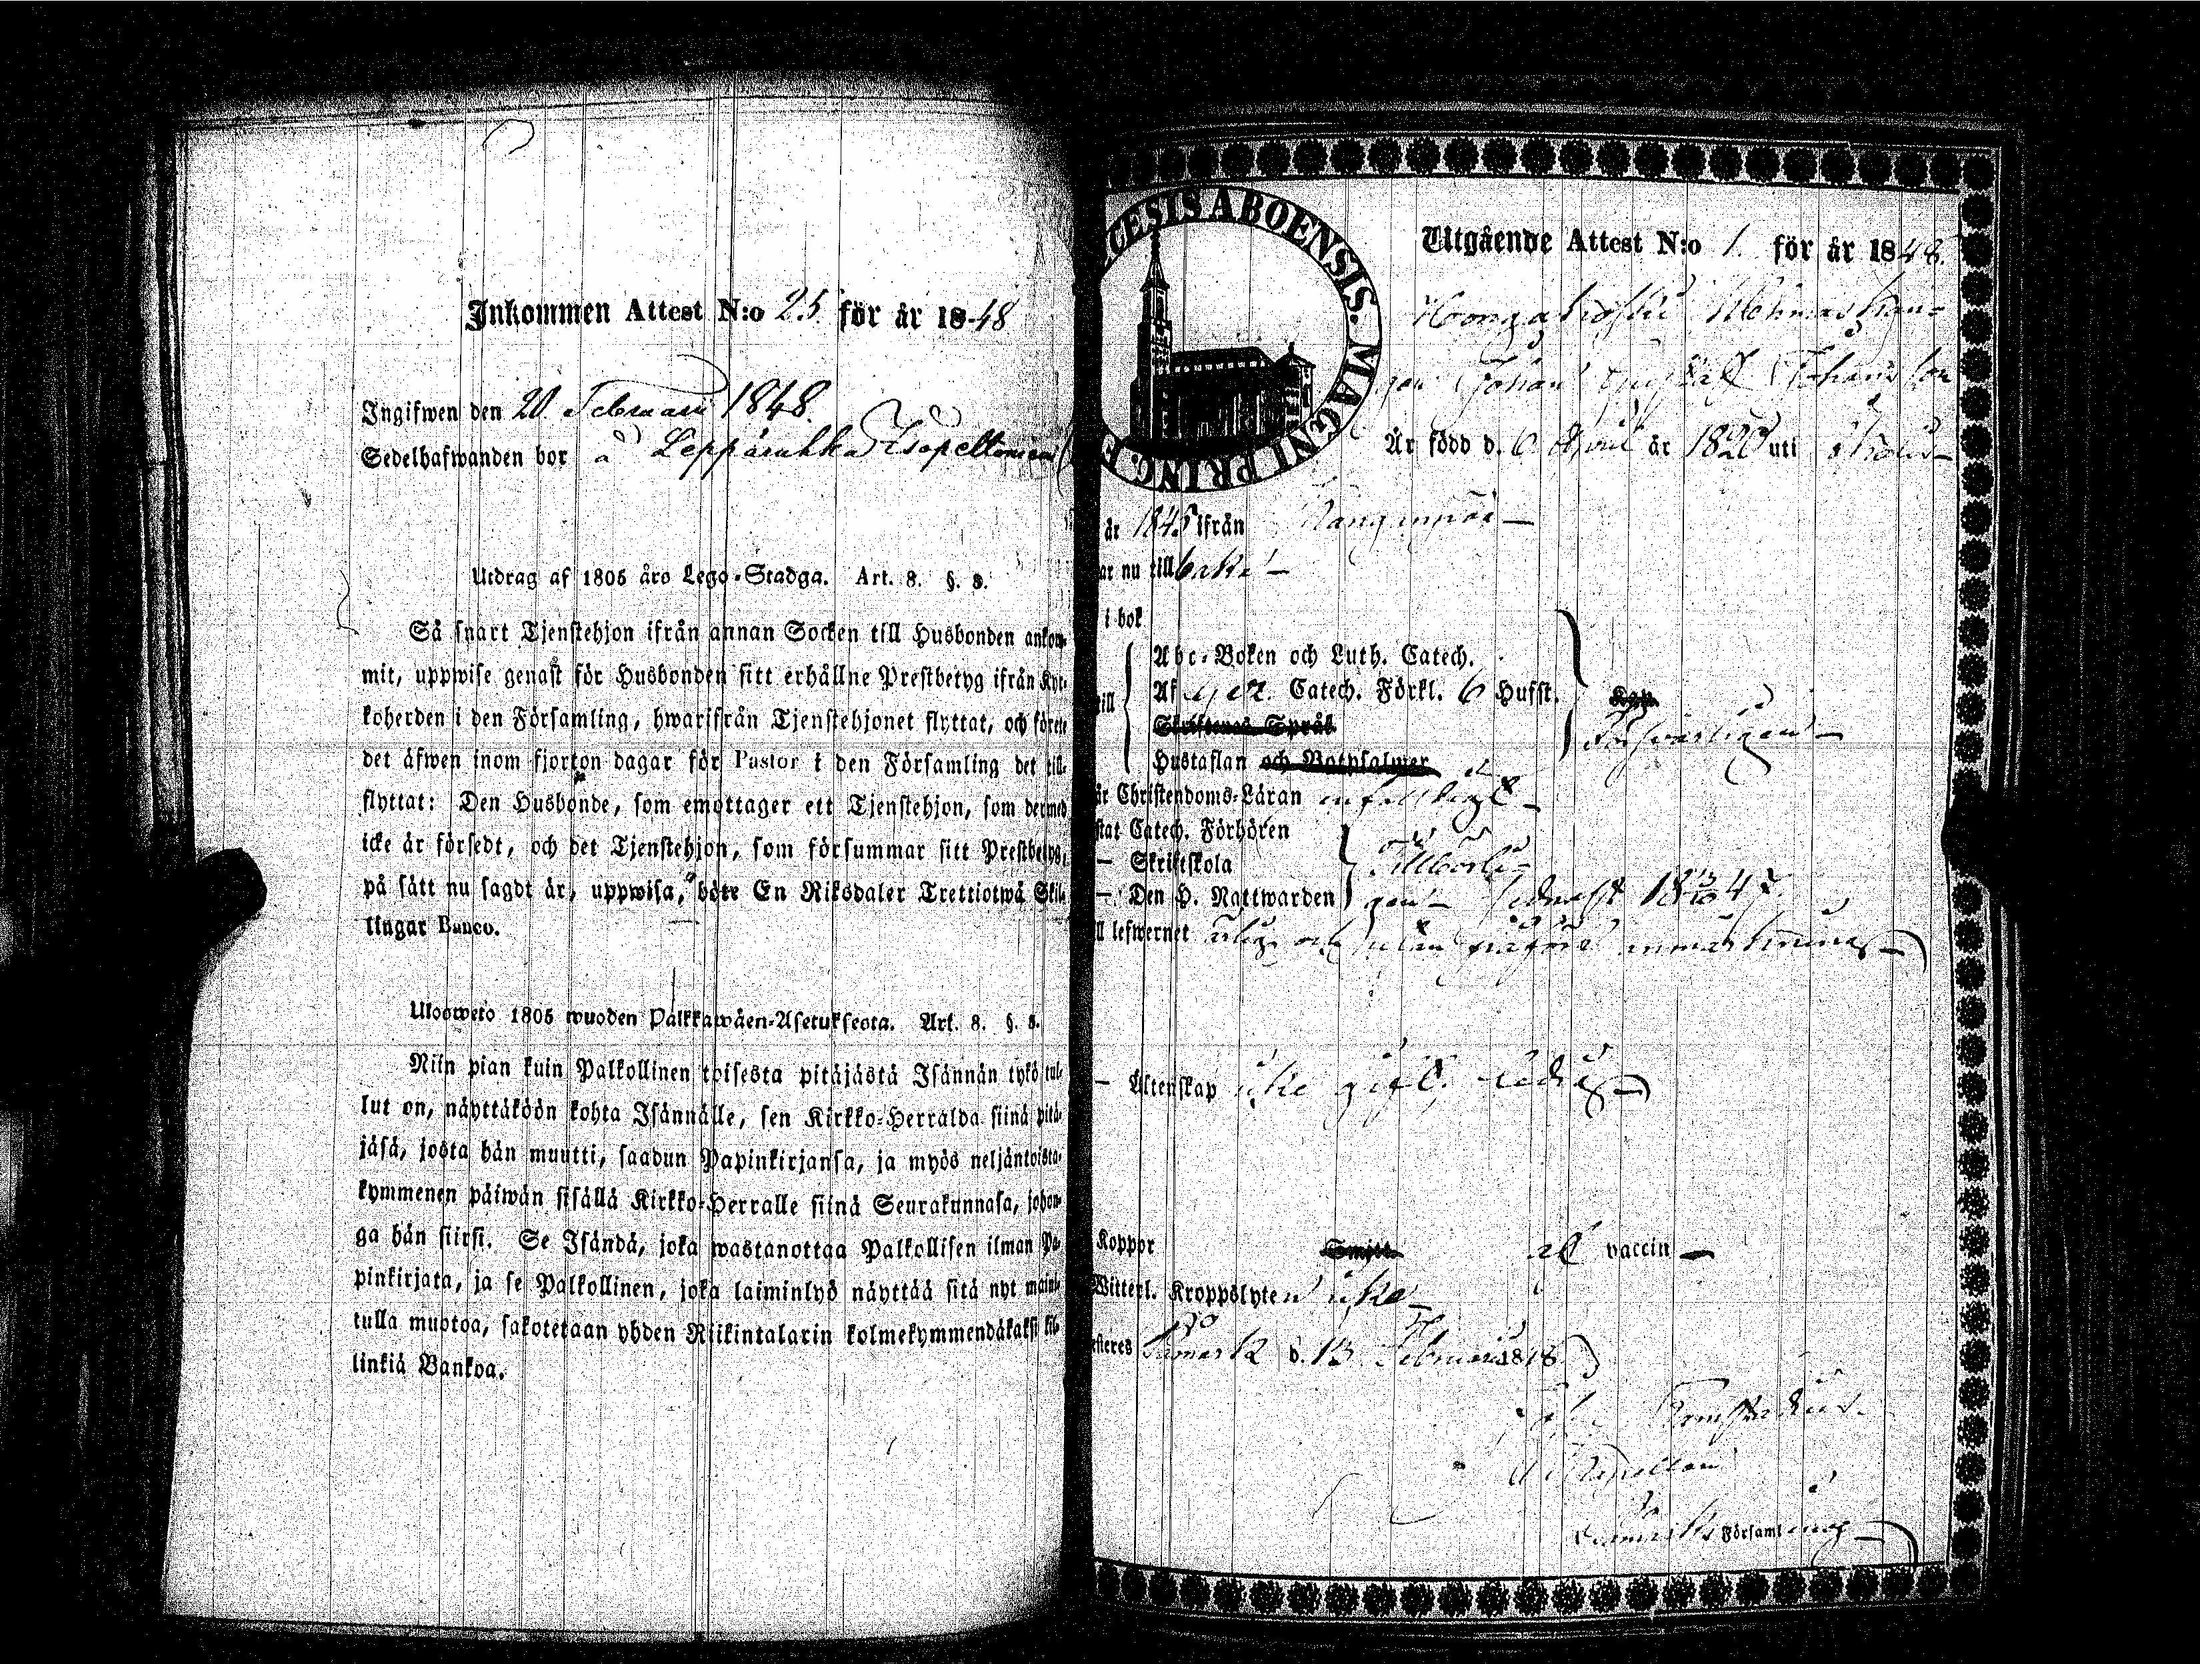 Inkommen Attest N:o 25 för år 1848
Ingifwen den 20 Februari 1848.
Sedelhafwanden bor å Leppärukka
Utdrag af 1805 års Lego-Stadga. Art. 8. §. 3.
Så snart Tjenstehjon ifrån annan Socken till Husbonden ankom-
mit, uppwise genast för Husbonden sitt erhållne Prestbetyg ifrån Kyr-
koherden i den Församling, hwarifrån Tjenstehjonet flyttat, och förete
det äfwen inom fjorton dagar för Pastor i den Församling det till-
flyttat: Den Husbonde, som emottager ett Tjenstehjon, som dermed
icke är försedt, och det Tjenstehjon, som försummar sitt Prestbetyg,
på sätt nu sagdt är, uppwisa, böte En Riksdaler Trettiotwå Skil-
lingar Banco.
Ulosweto 1805 wuoden Palkkawäen-Asetuksesta. Art. 8. §. 3.
Niin pian kuin Palkollinen toisesta pitäjästä Isännän tykö tul-
lut on, näyttäköön kohta Isännälle, sen Kirkko-Herralda siinä pitä-
jäsä, josta hän muutti, saadun Papinkirjansa, ja myös neljäntoista-
kymmenen päiwän sisällä Kirkko-Herralle siinä Seurakunnasa, johon-
ga hän siirsi. Se Isändä, joka wastanottaa Palkollisen ilman Pa-
pinkirjata, ja se Palkollinen, joka laiminlyö näyttää sitä nyt maini-
tulla muotoa, sakotetaan yhden Riikintalarin kolmekymmendäkaksi kil-
linkiä Bankoa.
CESIS ABOENSIS. MAGNI PRINC. F
Utgående Attest N:o 1. för år 1848.
Johan Gustaf Johansson
Är född d. 6 April år 1820 uti
år 1845 ifrån
ar nu tillbaka
i bok
Abc-Boken och Luth. Catech.
till Af Catech. Förkl. 6 Hufst.
Skriftenes Språk
Hustaflan och Botpsalmer
Försvarligen
är Christendoms-Läran enfaldigt
stat Catech. Förhören
— Skriftskola
Tillbörli-
— Den H. Nattwarden gen sednast 47
ll lefwernet ärlig och utan
— Äktenskap icke gift, ledig
Koppor vaccin
Witterl. Kroppslyten icke
esteres d. 13 Februari 1848
Församling